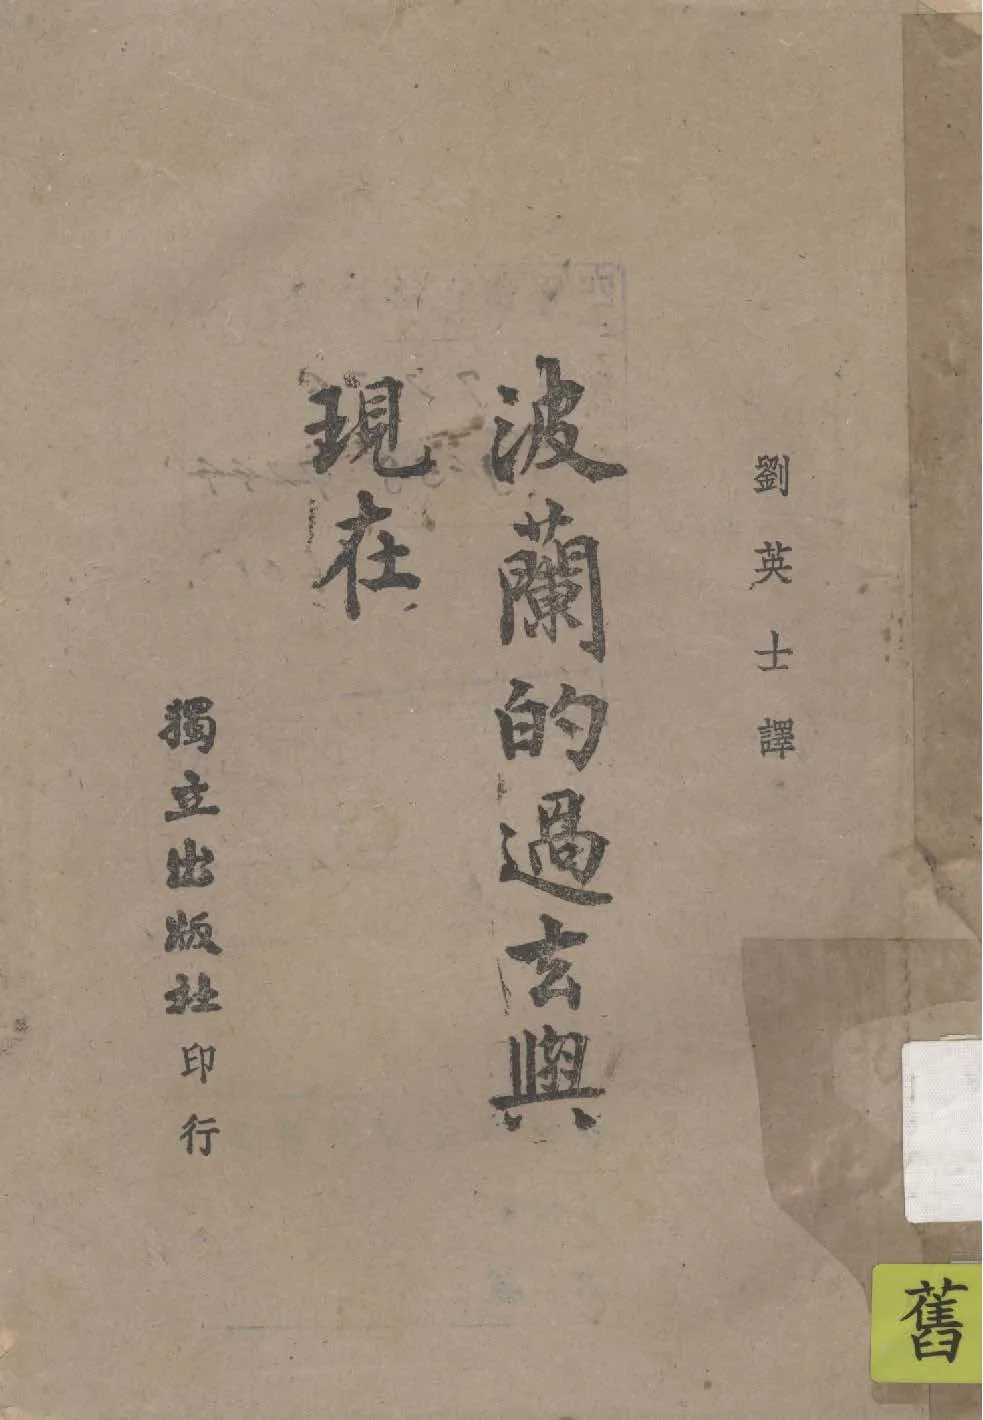 劉英士譯
波蘭的過去與
現在
獨立出版社印行
舊